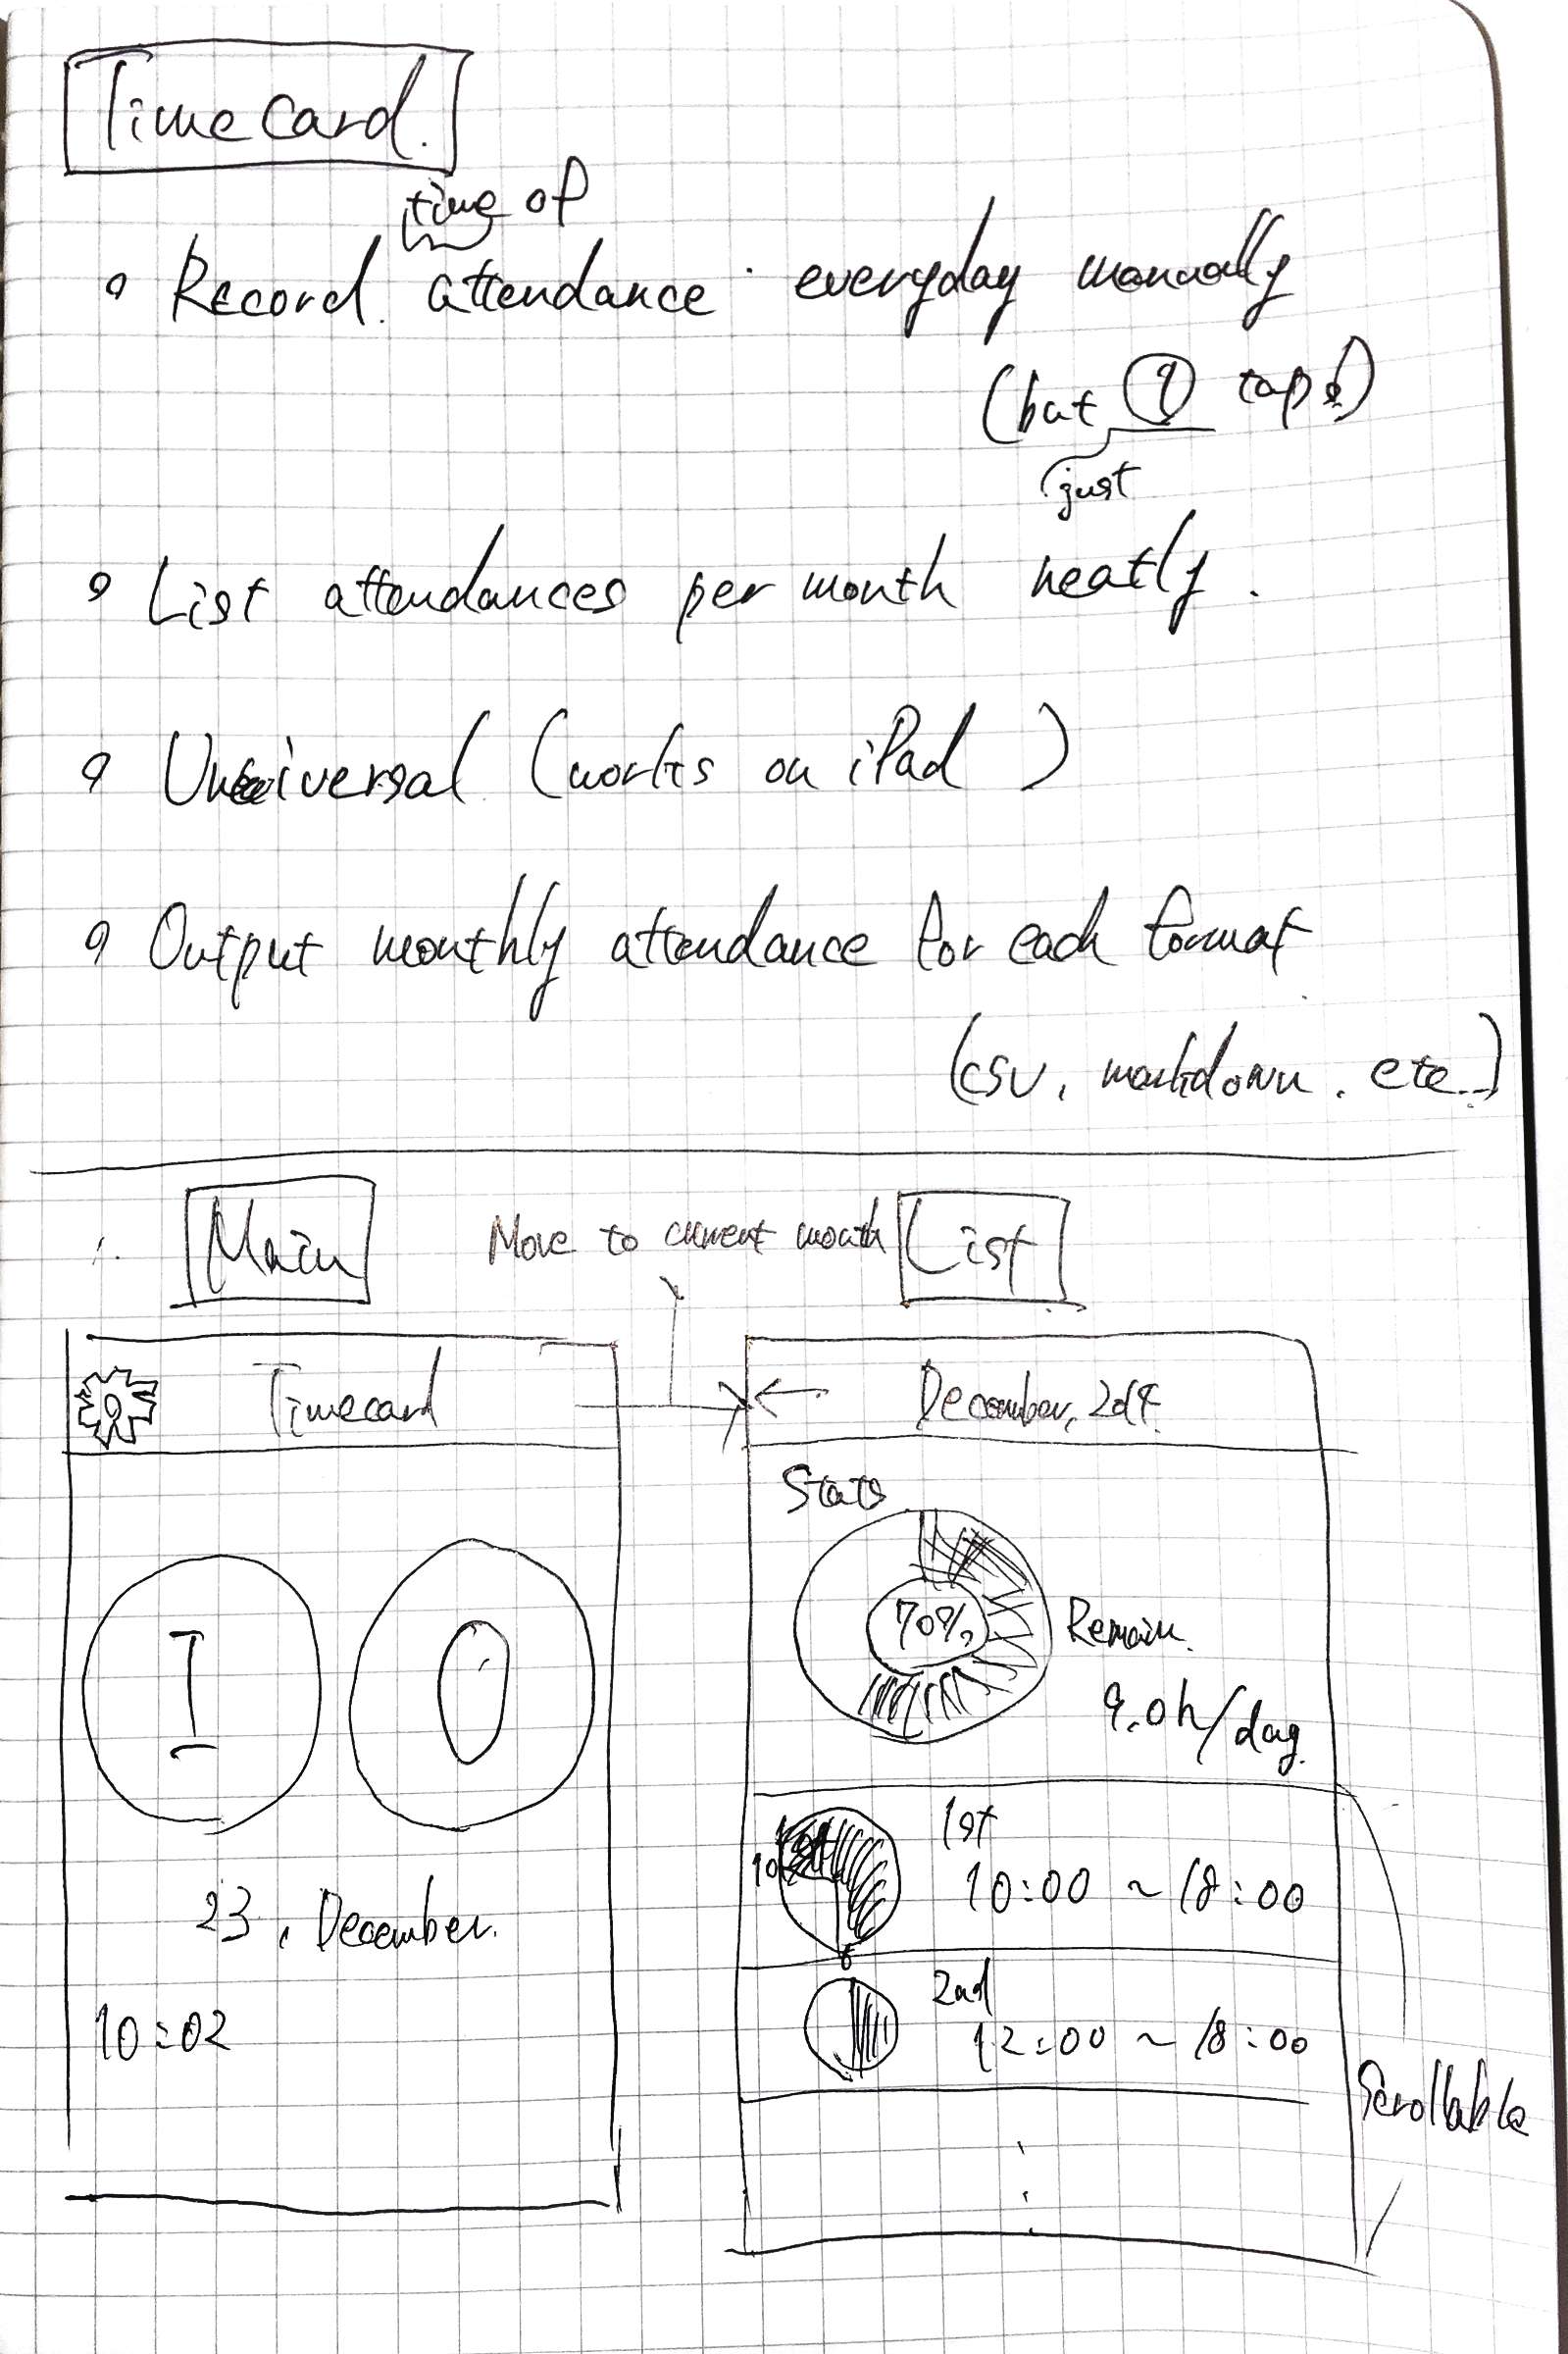 Timecard.
time of
Record attendance everyday manually
(but 1 taps)
just
List attendances per month neatly.
Universal (works on iPad)
Output monthly attendance for each format
(csv, markdown, etc.)
Main
Move to current month
List
Timecard
I
O
23, December.
10:02
← December, 2014
Stats
70%
Remain.
9.0h/day.
1st
10:00 ~ 18:00
6
2nd
12:00 ~ 18:00
Scrollable